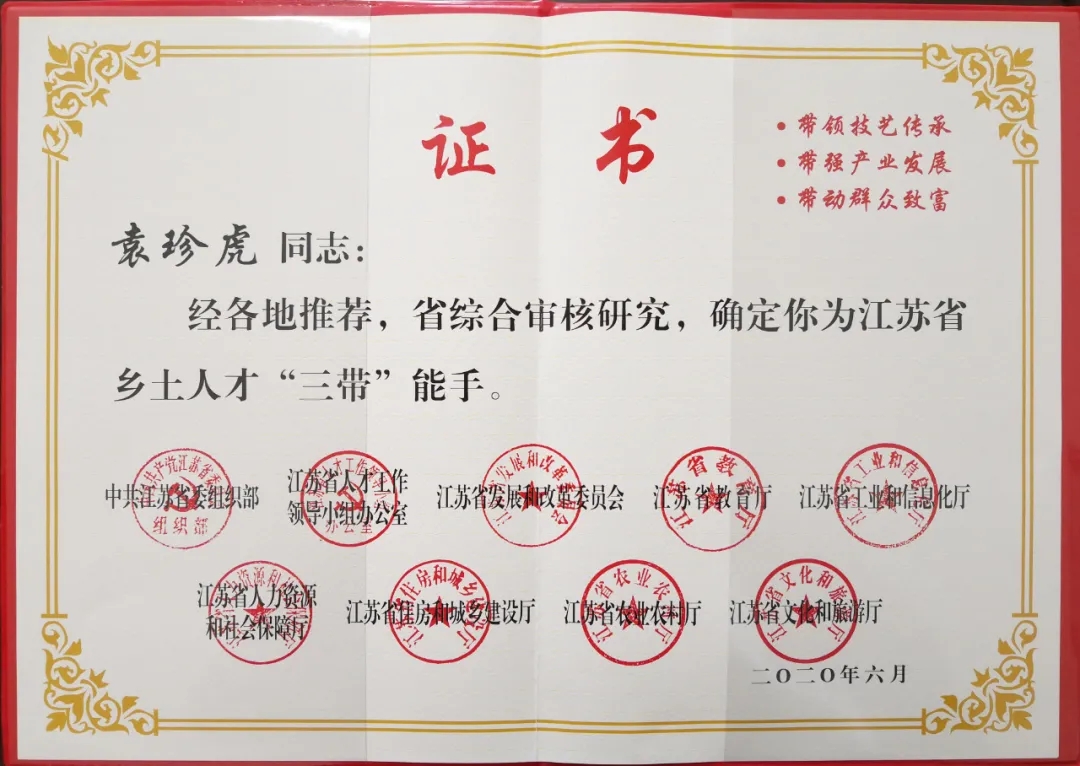 证书
• 带领技艺传承
• 带强产业发展
• 带动群众致富
袁珍虎 同志：
经各地推荐，省综合审核研究，确定你为江苏省
乡土人才“三带”能手。
中共江苏省委组织部
江苏省人才工作
领导小组办公室
江苏省发展和改革委员会
江苏省教育厅
江苏省工业和信息化厅
江苏省人力资源
和社会保障厅
江苏省住房和城乡建设厅
江苏省农业农村厅
江苏省文化和旅游厅
二〇二〇年六月